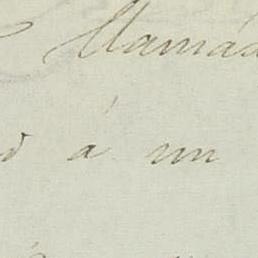 llamad
á un